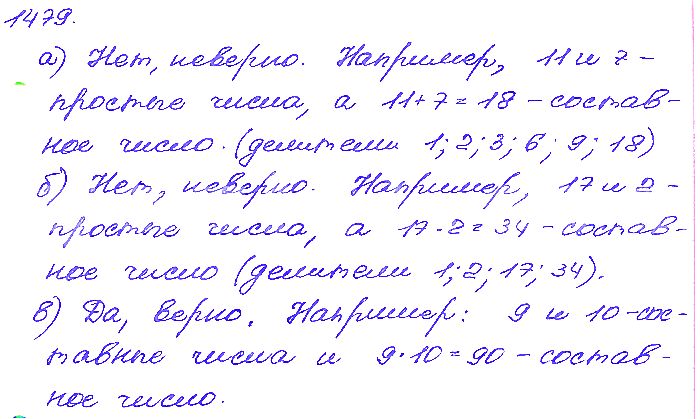 1479.
а) Нет, неверно. Например, 11 и 7 -
простые числа, а 11+7=18 - состав-
ное число. (делители 1; 2; 3; 6; 9; 18)
б) Нет, неверно. Например, 17 и 2 -
простые числа, а 17·2=34 - состав-
ное число (делители 1; 2; 17; 34).
в) Да, верно. Например: 9 и 10 - сос-
тавные числа и 9·10=90 - состав-
ное число.